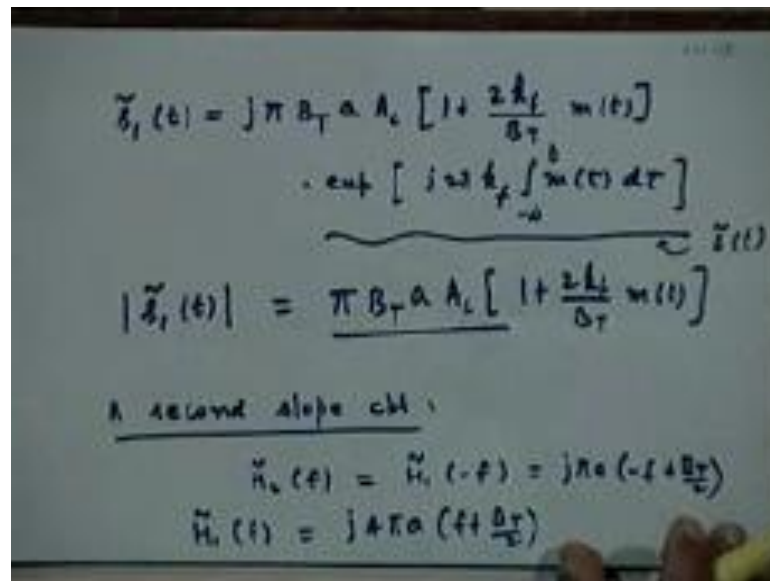 s̃₁(t) = jπ B_T a A_c [1 + 2k_f/B_T m(t)]
. exp [ j2π k_f ∫_{-∞}^{t} m(τ) dτ ]
s̃(t)
|s̃₁(t)| = π B_T a A_c [ 1 + 2k_f/B_T m(t) ]
A second slope ckt.
H̃₂(f) = H̃₁(-f) = jπa (-f + B_T/2)
H̃₁(f) = j4πa (f + B_T/2)